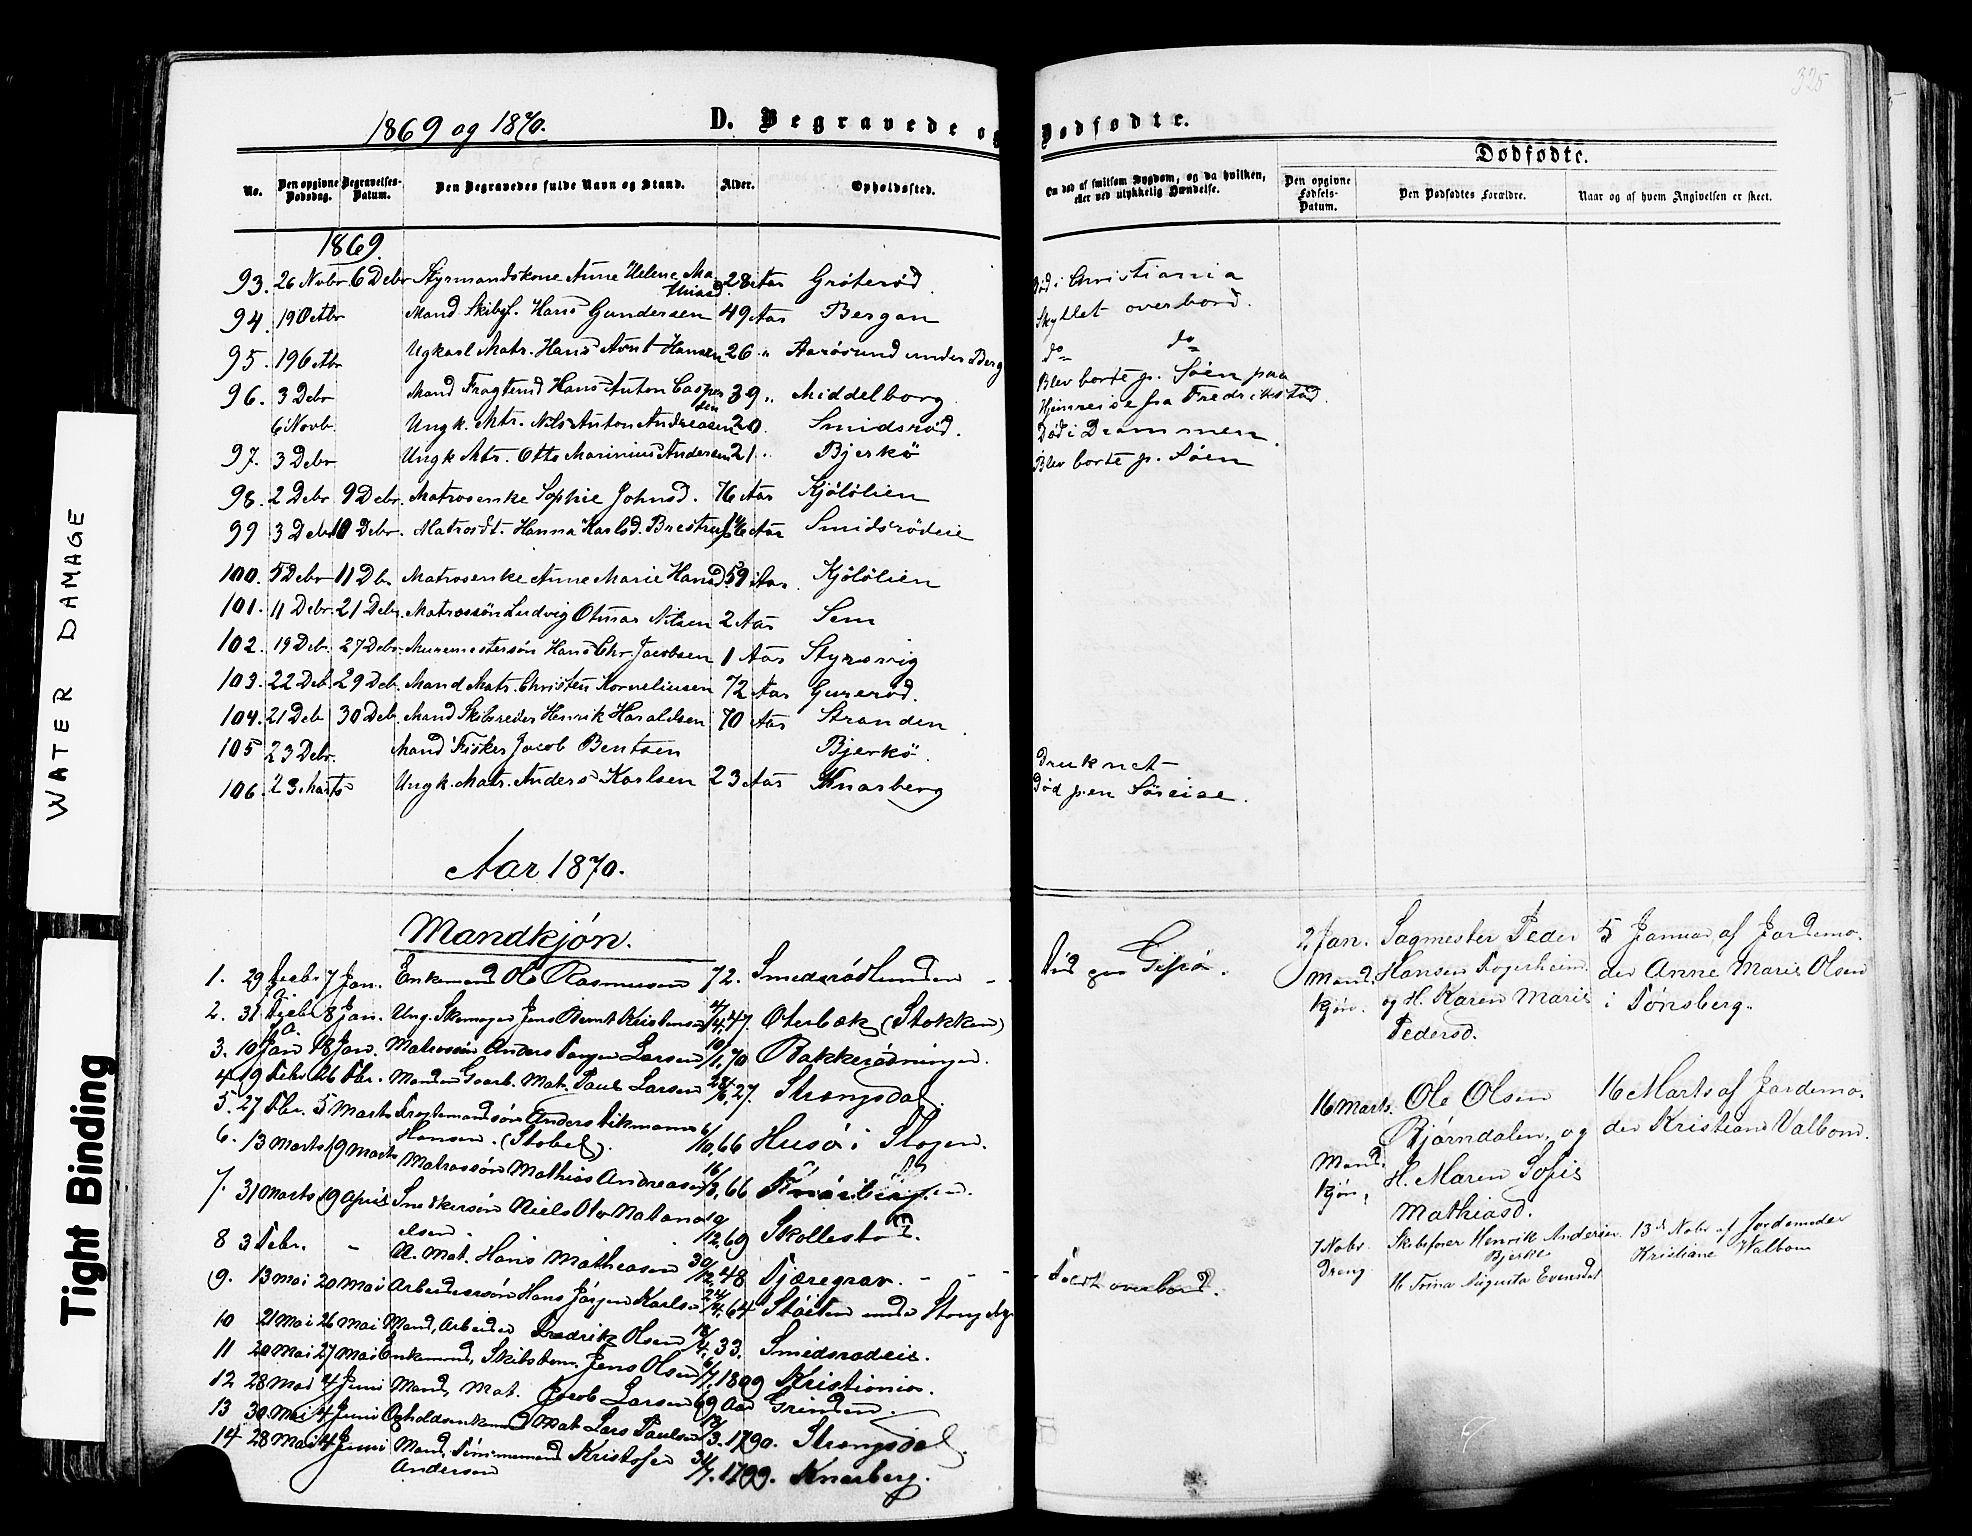 325
1869 og 1870. D. Begravede og Dødfødte.
No. Den opgivne Dødsdag. Begravelses-Datum. Den Begravedes fulde Navn og Stand. Alder. Opholdssted. Om død af smitsom Sygdom, og da hvilken, eller ved ulykkelig Hændelse. Dødfødte. Den opgivne Fødsels-Datum. Den Dødfødtes Forældre. Naar og af hvem Angivelsen er skeet.
1869.
93. 26 Novbr. 6 Debr Styrmandskone Anne Helene Ma- 28 Aar Grøterød. Død i Christiania
thiasd.
94. 19 Octbr Mand Skibsf. Hans Gundersen 49 Aar Bergan Skyllet overbord.
95. 19 Octbr Ugkarl Matr. Hans Arnt Hansen 26 " Aarøsund under Berg do do
96. 3 Debr Mand Fragtmd Hans Anton Casper 39 " Middelborg. Blev borte p. Søen paa
sen Hjemreise fra Fredrikstad.
6 Novb. Ungk. Mtr. Nils Anton Andreasen 20. Smidsrød. Død i Drammen.
97. 3 Debr Ungk Mtr. Otto Marinius Andersen 21 " Bjerkø Blev borte p. Søen
98. 2 Debr 9 Debr. Matrosenke Sophie Johnsd. 76 Aar Kjøløllien
99 3 Debr 10 Debr. Matrosdt. Hanna Karlsd. Brestrup Aar Smidsrødeie
100. 5 Debr 11 Db. Matrosenke Anne Marie Hansd. 59 Aar. Kjølølien
101. 11 Debr. 21 Debr. Matrossøn Ludvig Otmar Nilsen 2 Aar Sem
102. 19 Debr. 27 Debr. Muremestersøn Hans Chr. Jacobsen 1 Aar Styrsvig
103. 22 Deb. 29 Deb. Mand Matr. Christen Korneliusen 72 Aar Gunerød.
104. 21 Deb 30 Deb. Mand Skibsreder Henrik Haraldsen 70 Aar Stranden
105 23 Debr. Mand Fisker Jacob Bentsen Bjerkø. Druknet
106. 23 Marts Ungk. Matr. Anders Karlsen 23 Aar Knarberg Død p. en Søreise.
Aar 1870.
Mandkjøn.
1. 29 Decbr 7 Jan. Enkemand Ole Rasmussen 72. Smedsrødlunden
2. 31 Decbr 8 Jan. Ung. Skomager Jens Bernt Kristensen 4/4, 47. Oterbæk (Stokken)
3. 10 Jan 18 Jan. Matrossøn Anders Torger Larsen 10/1, 70 Bakkerødningen.
4 19 Febr 26 Fbr. Manden Gaarb. Mat. Paul Larsen 28/6, 27. Strengsdal.
5. 27 Fbr. 5 Marts Fragtemandssøn Anders Dikmann 6/10, 66 Husø i Slagen.
Hansen. (Stobel).
6. 13 Marts 19 Marts Matrossøn Mathias Andreasen 16/3, 66
7. 31 Marts 9 April Snedkersøn Niels Olov Natana 19/12, 69 Skallestø.
elsen.
8 3 Febr. - U. Mat. Hans Matheasen 30/12, 48 Tjæregrav. - - - Faldt overbord.
9. 13 Mai 20 Mai Arbeiderssøn Hans Jørgen Karlsen 24/4, 64 Støiten under
10 21 Mai 26 Mai Mand, Arbeider Fredrik Olsen 18/4, 33. Smidsrødeie.
11 20 Mai 27 Mai Enkemand, Skibstøm. Jens Olsen 6/7, 1809 Kristiania.
12 28 Mai 4 Juni Mand, Mat. Jacob Larsen 69 Aar Grinden.
13 30 Mai 4 Juni Opholdsenkemand Mat Lars Paulsen 18/3. 1790. Strengsdal.
14 28 Mai 4 Juni Mand, Tømmermand Kristofer 31/7. 1799. Knarberg.
Andersen
Død paa Gipø.
2 Jan. Sagmester Peder 5 Januar af Jordemo-
Mand- Hansen Fogerheim der Anne Marie Olsen
kjøn. og H. Karen Marie i Tønsberg.
Pedersd.
16 Marts. Ole Olsen 16 Marts af Jordemo-
Bjørndalen og der Kristiane Valbom.
Mand- H. Maren Sofie
kjøn, Mathiasd.
7 Nobr. Skibsfører Henrik Andersen 13de Nobr af Jordemoder
Dreng. Bjerke Kristiane Walbom
H Trina Augusta Evensdat
WATER DAMAGE
Tight Binding